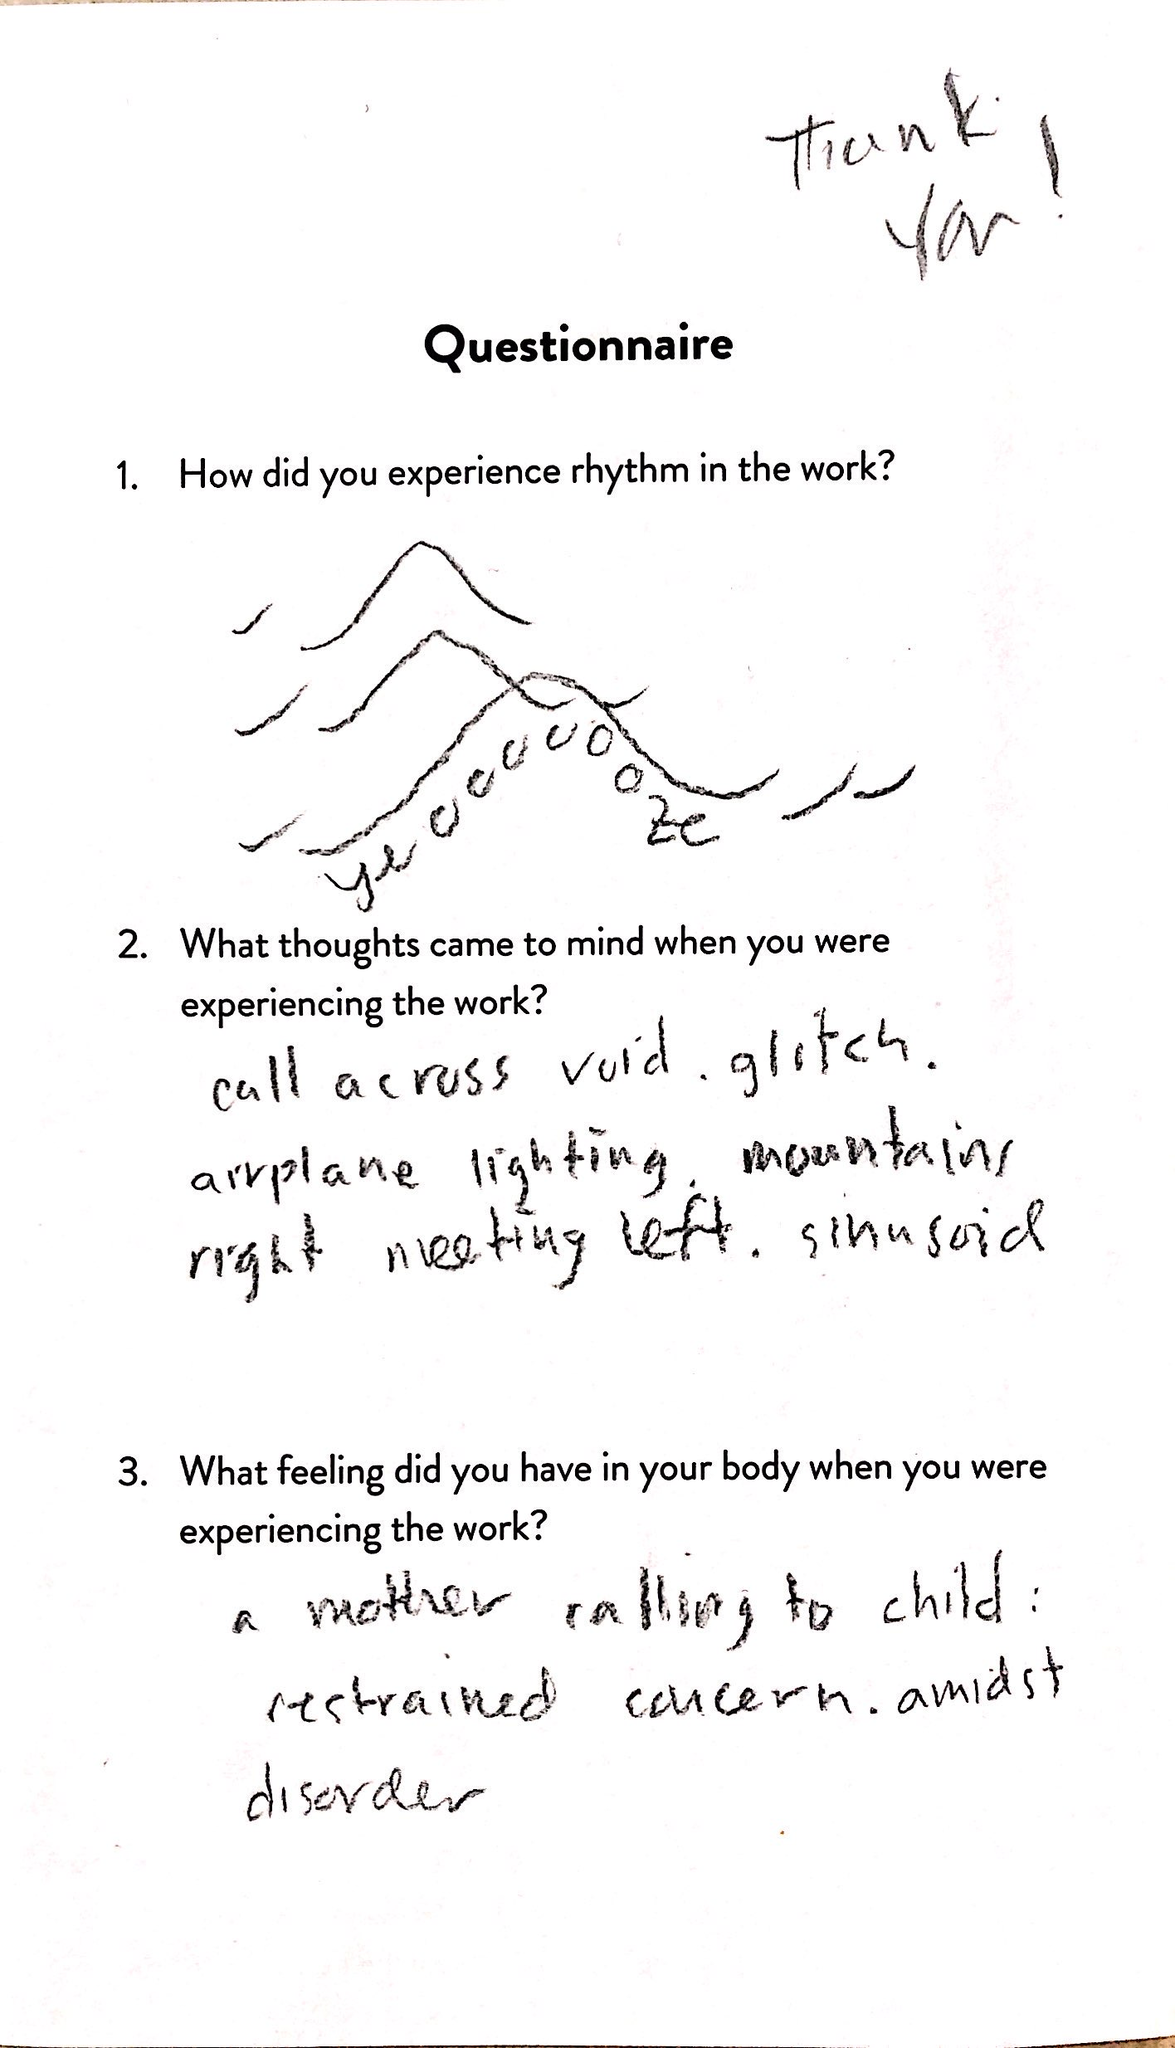 Thank
You!
Questionnaire
1. How did you experience rhythm in the work?
2. What thoughts came to mind when you were
experiencing the work?
call across void. glitch.
airplane lighting. mountains
right meeting left. sinusoid
3. What feeling did you have in your body when you were
experiencing the work?
a mother calling to child:
restrained concern. amidst
disorder